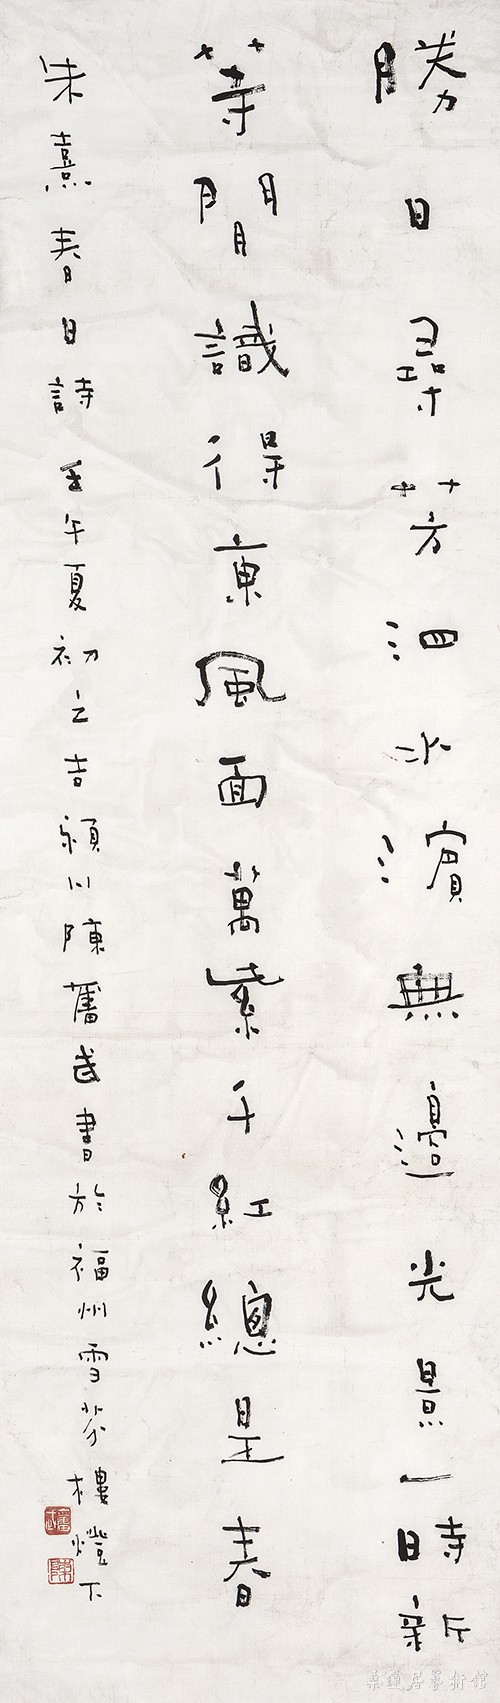 勝日尋芳泗水濱無邊光景一時新
等閒識得東風面萬紫千紅總是春
朱熹春日詩壬午夏初之吉潁川陳奮武書於福州雪芬樓燈下
奮武
陳